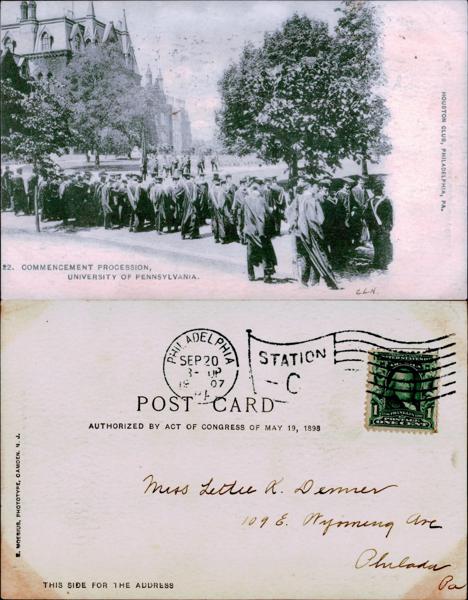 HOUSTON CLUB, PHILADELPHIA, PA.
22. COMMENCEMENT PROCESSION,
UNIVERSITY OF PENNSYLVANIA.
C.L.H.
PHILADELPHIA
SEP 20
07
PA.
STATION
C
POST CARD
AUTHORIZED BY ACT OF CONGRESS OF MAY 19, 1898
1
FRANKLIN
ONE CENT
Miss Lettie K. Denner
109 E. Wyoming Ave
Philada
Pa
E. MOEBIUS, PHOTOTYPE, CAMDEN, N. J.
THIS SIDE FOR THE ADDRESS